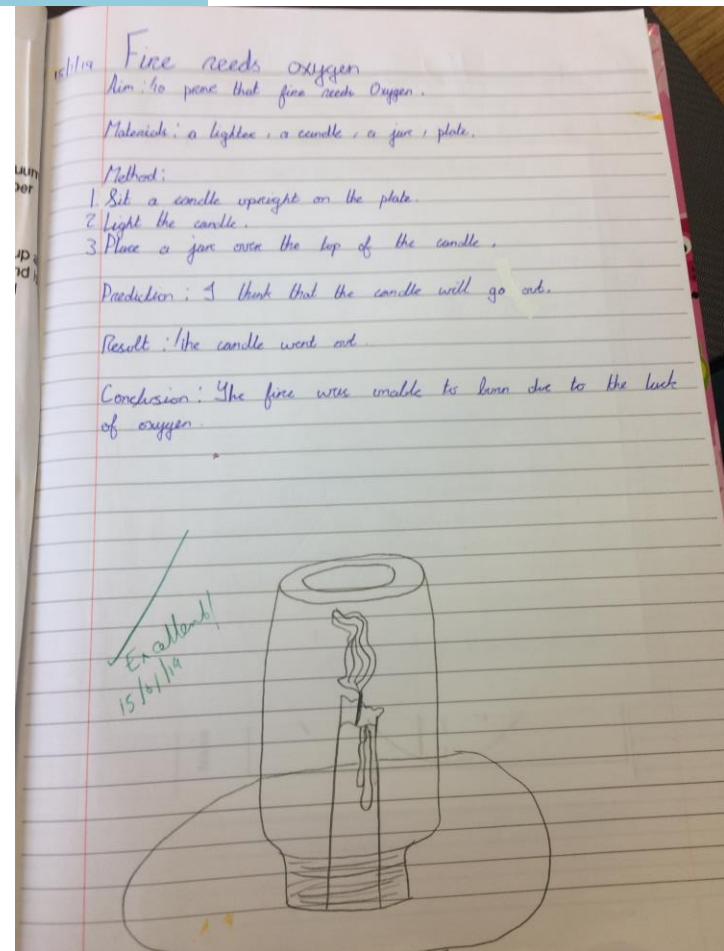 15/1/19 Fire needs oxygen
Aim : to prove that fire needs Oxygen.
Materials : a lighter, a candle, a jar, plate.
Method :
1. Sit a candle upright on the plate.
2 Light the candle.
3 Place a jar over the top of the candle.
Prediction : I think that the candle will go out.
Result : The candle went out.
Conclusion : The fire was unable to burn due to the lack
of oxygen.
Excellent!
15/01/19